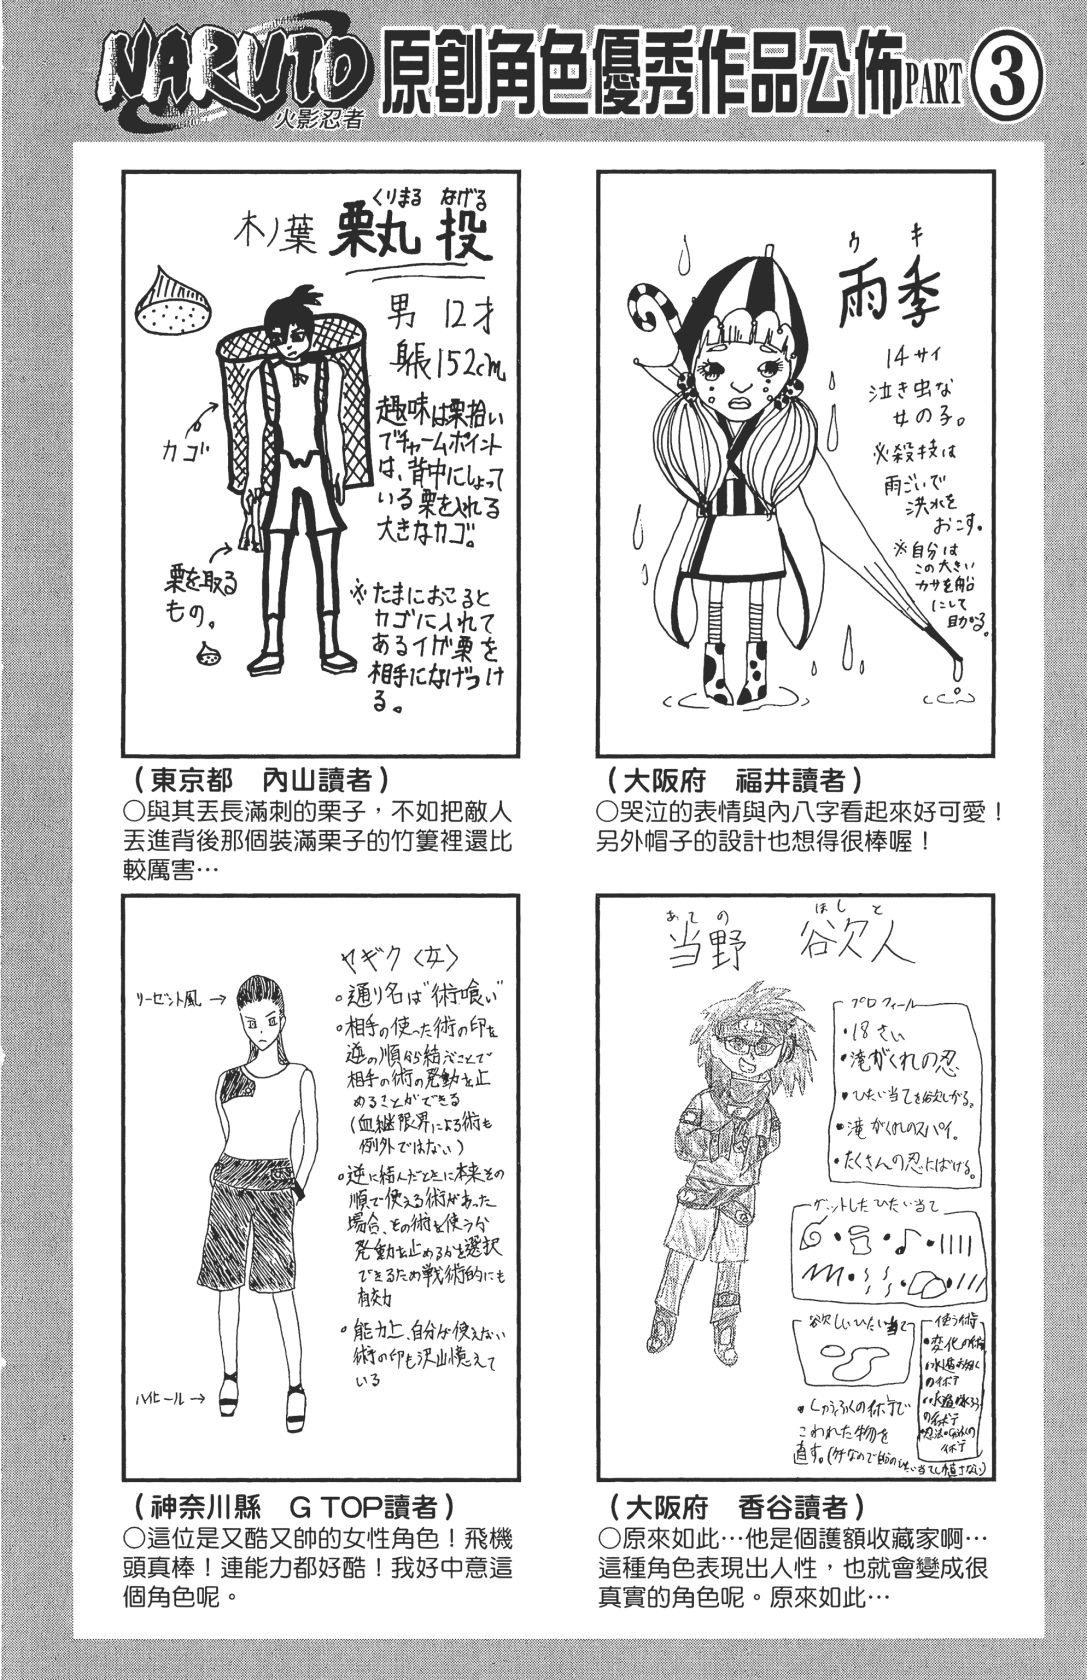 NARUTO
火影忍者
原創角色優秀作品公佈PART③
くりまる なげる
木ノ葉 栗丸 投
男 12才
身長152cm
趣味は栗拾い
でチャームポイント
は、背中にしょって
いる栗を入れる
大きなカゴ。
カゴ
栗を取る
もの。
※たまにおこると
カゴに入れて
あるイガ栗を
相手になげつけ
る。
(東京都 內山讀者)
○與其丟長滿刺的栗子，不如把敵人
丟進背後那個裝滿栗子的竹簍裡還比
較厲害…
ウキ
雨季
14サイ
泣き虫な
女の子。
※殺技は
雨ごいで
洪水を
おこす。
※自分は
この大きい
カサを船
にして
助かる。
(大阪府 福井讀者)
○哭泣的表情與內八字看起來好可愛！
另外帽子的設計也想得很棒喔！
ヤギク〈女〉
リーゼント風
。通り名は“術喰い”
。相手の使った術の印を
逆の順から結ぶことで
相手の術の発動を止
めることができる
(血継限界による術も
例外ではない)
。逆に結んだときに本来その
順で使える術があった
場合、その術を使うか
発動を止めるかを選択
できるため戦術的にも
有効
。能力上、自分が使えない
術の印も沢山憶えて
いる
ハイヒール
(神奈川縣 G TOP讀者)
○這位是又酷又帥的女性角色！飛機
頭真棒！連能力都好酷！我好中意這
個角色呢。
あての ほしと
当野 谷欠人
プロフィール
・18さい
・滝がくれの忍
・ひたい当てを欲しがる。
・滝がくれのスパイ。
・たくさんの忍にばける。
ゲットしたひたい当て
欲しいひたい当て
使う術
・変化の術
・しゅうふくの術で
こわれた物を
直す。
(大阪府 香谷讀者)
○原來如此…他是個護額收藏家啊…
這種角色表現出人性，也就會變成很
真實的角色呢。原來如此…